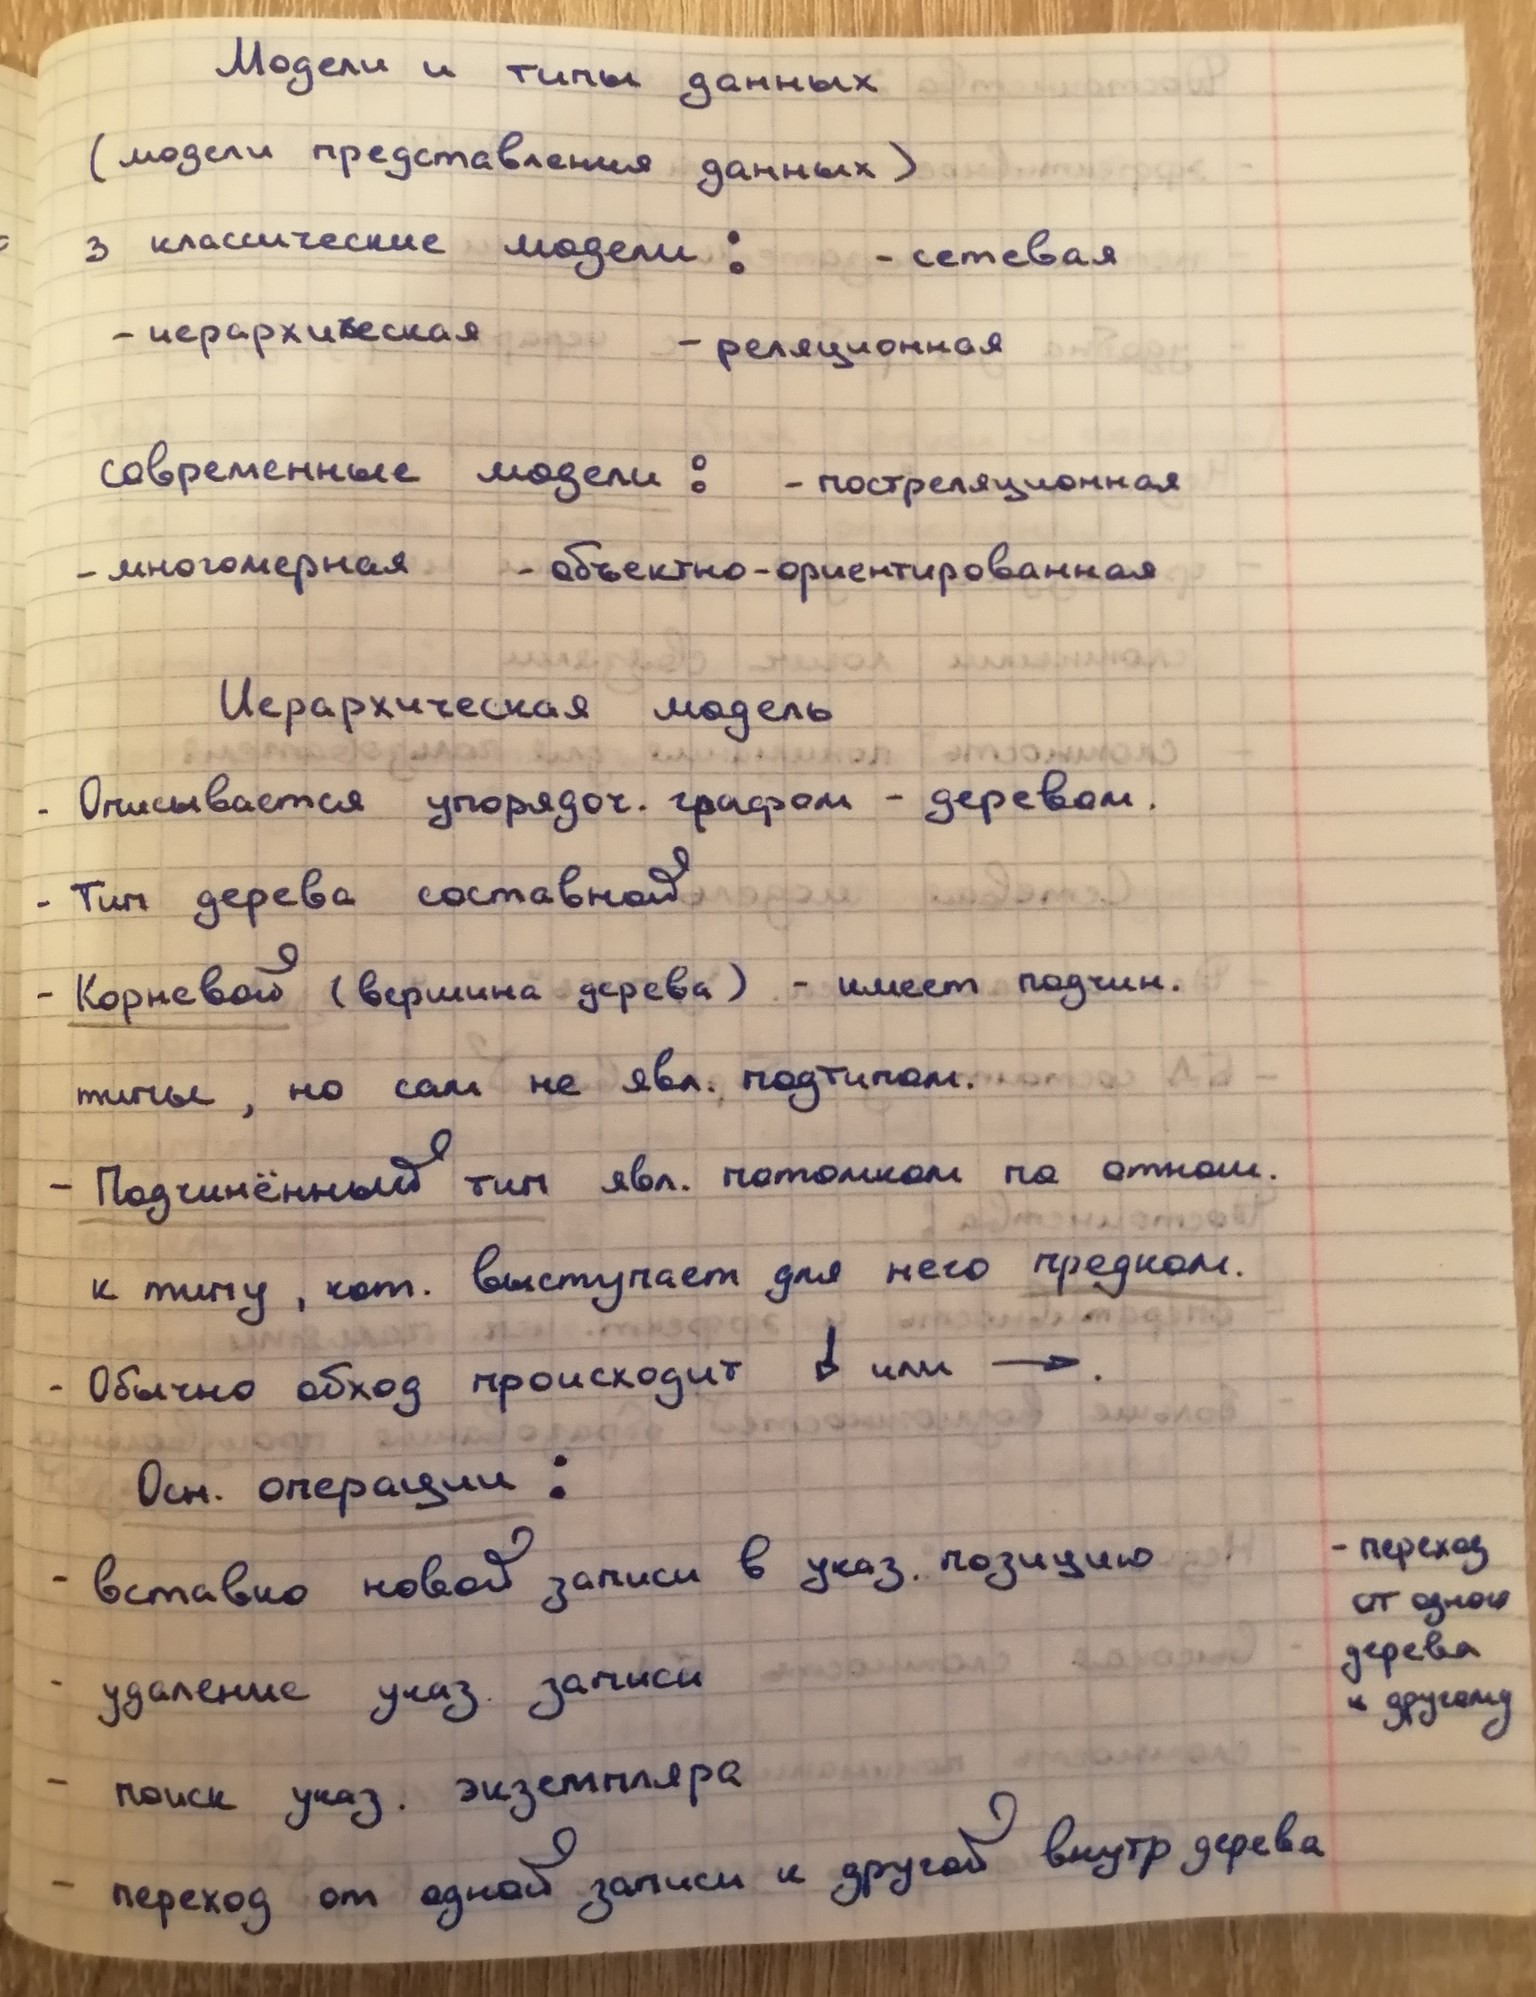 Модели и типы данных
(модели представления данных)
3 классические модели: - сетевая
- иерархическая - реляционная
современные модели: - постреляционная
- многомерная - объектно-ориентированная
Иерархическая модель
- Описывается упорядоч. графом - деревом.
- Тип дерева составной
- Корневой (вершина дерева) - имеет подчин.
типы, но сам не явл. подтипом.
- Подчинённый тип явл. потомком по отнош.
к типу, кот. выступает для него предком.
- Обычно обход происходит ↓ или →.
Осн. операции:
- вставка новой записи в указ. позицию
- удаление указ. записи
- поиск указ. экземпляра
- переход от одной записи к другой внутр дерева
- переход
от одного
дерева
к другому